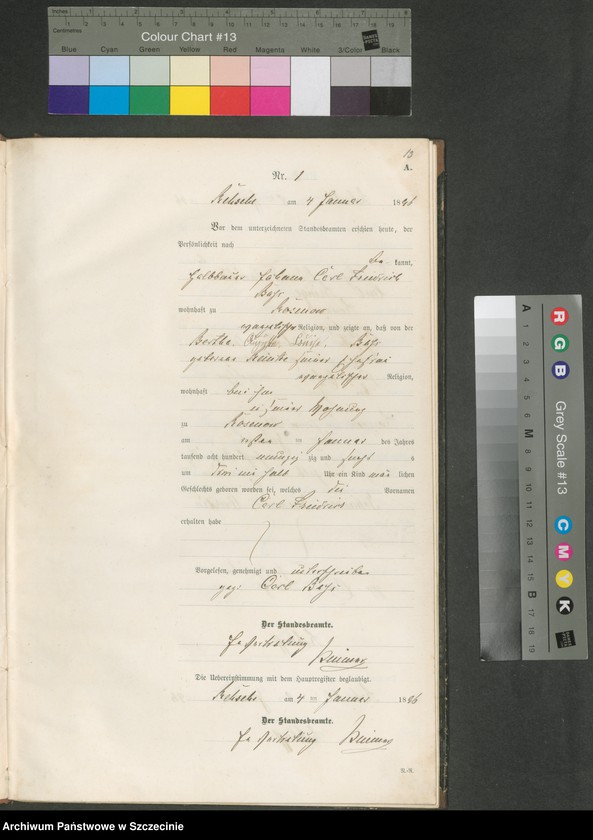 Inches 1 2 3 4 5 6 7 8
Centimetres 1 2 3 4 5 6 7 8 9 10 11 12 13 14 15 16 17 18 19
Colour Chart #13
Blue Cyan Green Yellow Red Magenta White 3/Color Black
13
A.
Nr. 1
am 4 Januar 1896
Vor dem unterzeichneten Standesbeamten erschien heute, der
Persönlichkeit nach
be kannt,
Halbbauer Johann Carl Friedrich
wohnhaft zu Rosenow
evangelischer Religion, und zeigte an, daß von der
Bertha
geborenen seiner Ehefrau
evangelischer Religion,
wohnhaft bei ihm
in seiner Wohnung
zu Rosenow
am ersten Januar des Jahres
tausend acht hundert neunzig zig und sechs
um ein halb Uhr ein Kind männ lichen
Geschlechts geboren worden sei, welches die Vornamen
Carl Friedrich
erhalten habe
Vorgelesen, genehmigt und unterschrieben
gez. Carl
Der Standesbeamte.
In Vertretung
Die Uebereinstimmung mit dem Hauptregister beglaubigt.
am 4 ten Januar 1896
Der Standesbeamte.
In Vertretung
A
1
2
3
4
5
6
M
8
9
10
11
12
13
14
15
B
17
18
19
R
G
B
Grey Scale #13
C
M
Y
K
Archiwum Państwowe w Szczecinie